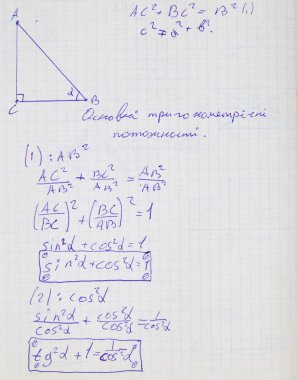 A
AC² + BC² = B² (1)
c² = a² + b².
C α B
Основні тригонометричні
тотожності.
(1) : AB²
AC²/AB² + BC²/AB² = AB²/AB²
(AC/BC)² + (BC/AB)² = 1
sin²α + cos²α = 1
sin²α + cos²α = 1
(2) : cos²α
sin²α/cos²α + cos²α/cos²α = 1/cos²α
tg²α + 1 = 1/cos²α